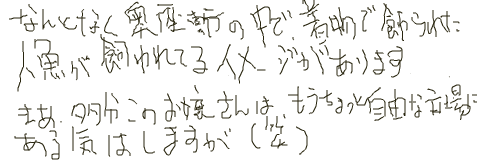 なんとなく奥座敷の中で着物で飾られた
人魚が飼われてるイメージがあります
まあ、多分このお嬢さんは、もうちょっと自由な立場に
ある気はしますが（笑）